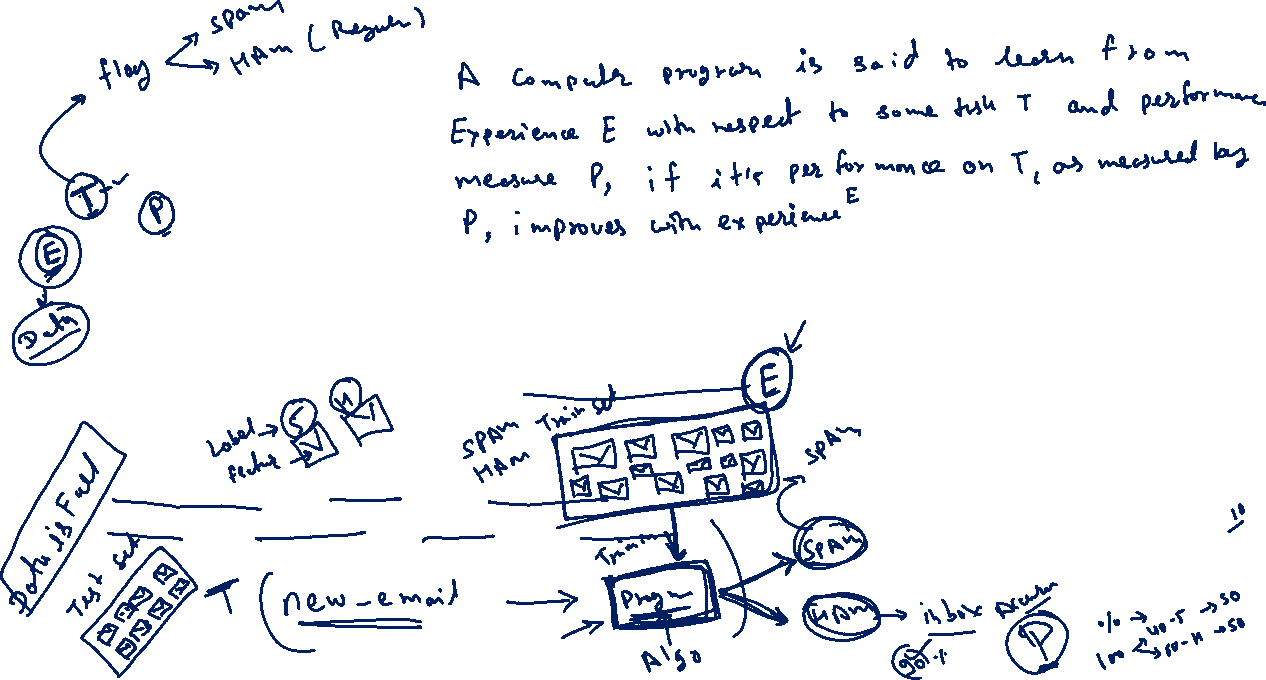 SPAM
flag
HAM (Regular)
A Computer program is said to learn from
Experience E with respect to some task T and performance
measure P, if it's performance on T, as measured by
P, improves with experience E
T
P
E
Data
E
Train set
SPAM
HAM
S
H
Label
SPAM
Data is Fuel
Test set
T
new-email
Training
Program
Algo
SPAM
HAM
inbox
90%
P
10
%
100